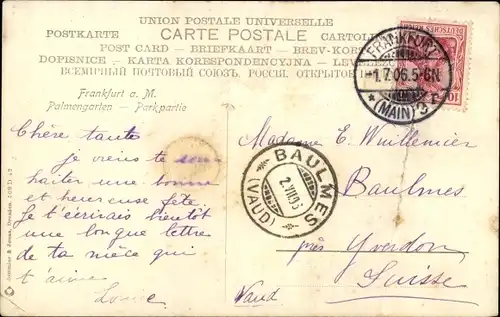 UNION POSTALE UNIVERSELLE
POSTKARTE CARTE POSTALE CARTOLI
POST CARD — BRIEFKAART — BREV-KORT
DOPISNICE — KARTA KORESPONDENCYJNA — LEV
ВСЕМІРНЫЙ ПОЧТОВЫЙ СОЮЗЪ. РОССІЯ. ОТКРЫТОЕ
Frankfurt a. M.
Palmengarten — Parkpartie
FRANKFURT
1.7.06.5-6N
* (MAIN) 3
DEUTSCHES
10
Chère tante
je viens te sou
haiter une bonne
et heureuse fête.
Je t'écrirais bientôt
une longue lettre
de ta nièce qui
t'aime
BAULMES
(VAUD)
Madame E. Wuillemier
Baulmes
près Yverdon
Suisse
Vaud